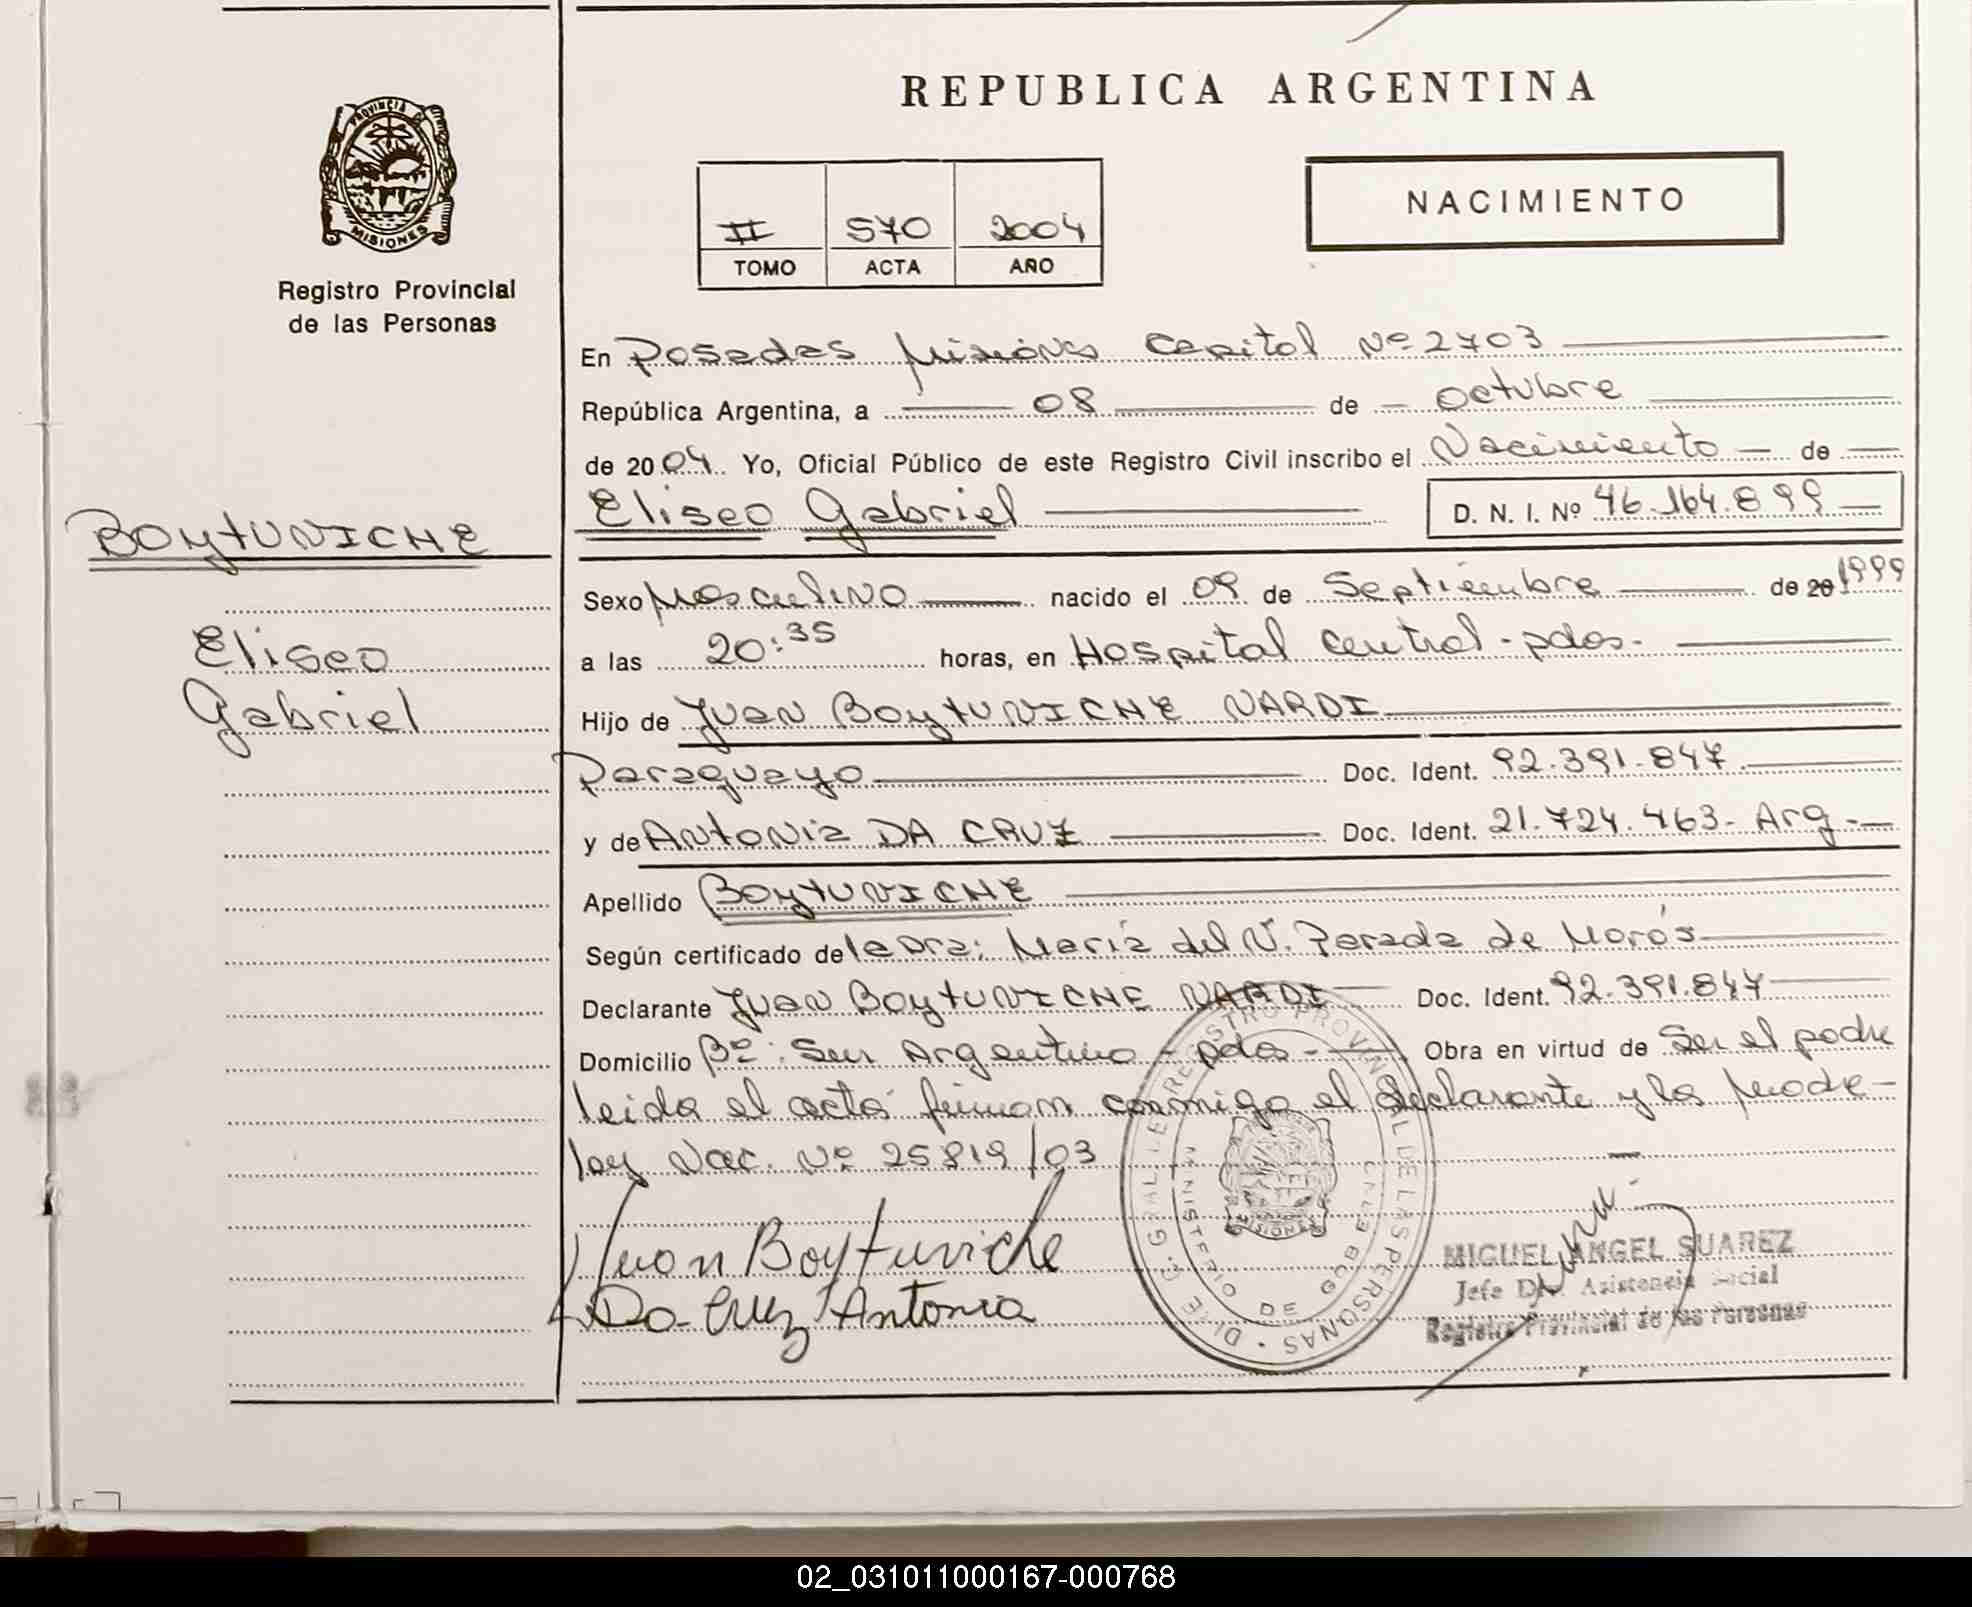 REPUBLICA ARGENTINA
PROVINCIA DE
MISIONES
Registro Provincial
de las Personas
II 570 2004
TOMO ACTA AÑO
NACIMIENTO
En Posadas Misiones Capital Nº 2703
República Argentina, a 08 de octubre
de 2004 Yo, Oficial Público de este Registro Civil inscribo el Nacimiento de
Eliseo Gabriel D. N. I. Nº 46.164.899
BOYTUNICHE
Sexo Masculino nacido el 09 de Septiembre de 20 1999
Eliseo
a las 20:35 horas, en Hospital Central - pdas -
Gabriel
Hijo de Juan BOYTUNICHE NARDI
Paraguayo Doc. Ident. 92.391.847
y de Antonia DA CRUZ Doc. Ident. 21.724.463 - Arg -
Apellido BOYTUNICHE
Según certificado de la Dra: María del N. Parada de Morós
Declarante Juan BOYTUNICHE NARDI Doc. Ident. 92.391.847
Domicilio Bº: Sur Argentino - pdas - Obra en virtud de Ser el padre
leida el acta firman conmigo el declarante y la madre -
ley Nac. Nº 25819/03
Juan Boytuniche
Da Cruz Antonia
DIRE G. GRAL. DE REGISTRO PROVINCIAL DE LAS PERSONAS
MINISTERIO DE GOB
MISIONES
MIGUEL ANGEL SUAREZ
Jefe Dto. Asistencia Social
Registro Provincial de las Personas
02_031011000167-000768